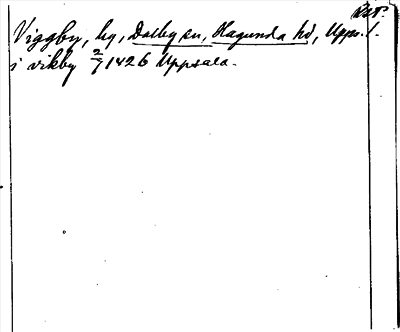 Viggby, by, Dalby sn, Hagunda hd, Upps. l.
i vikby 2/7 1426 Uppsala.